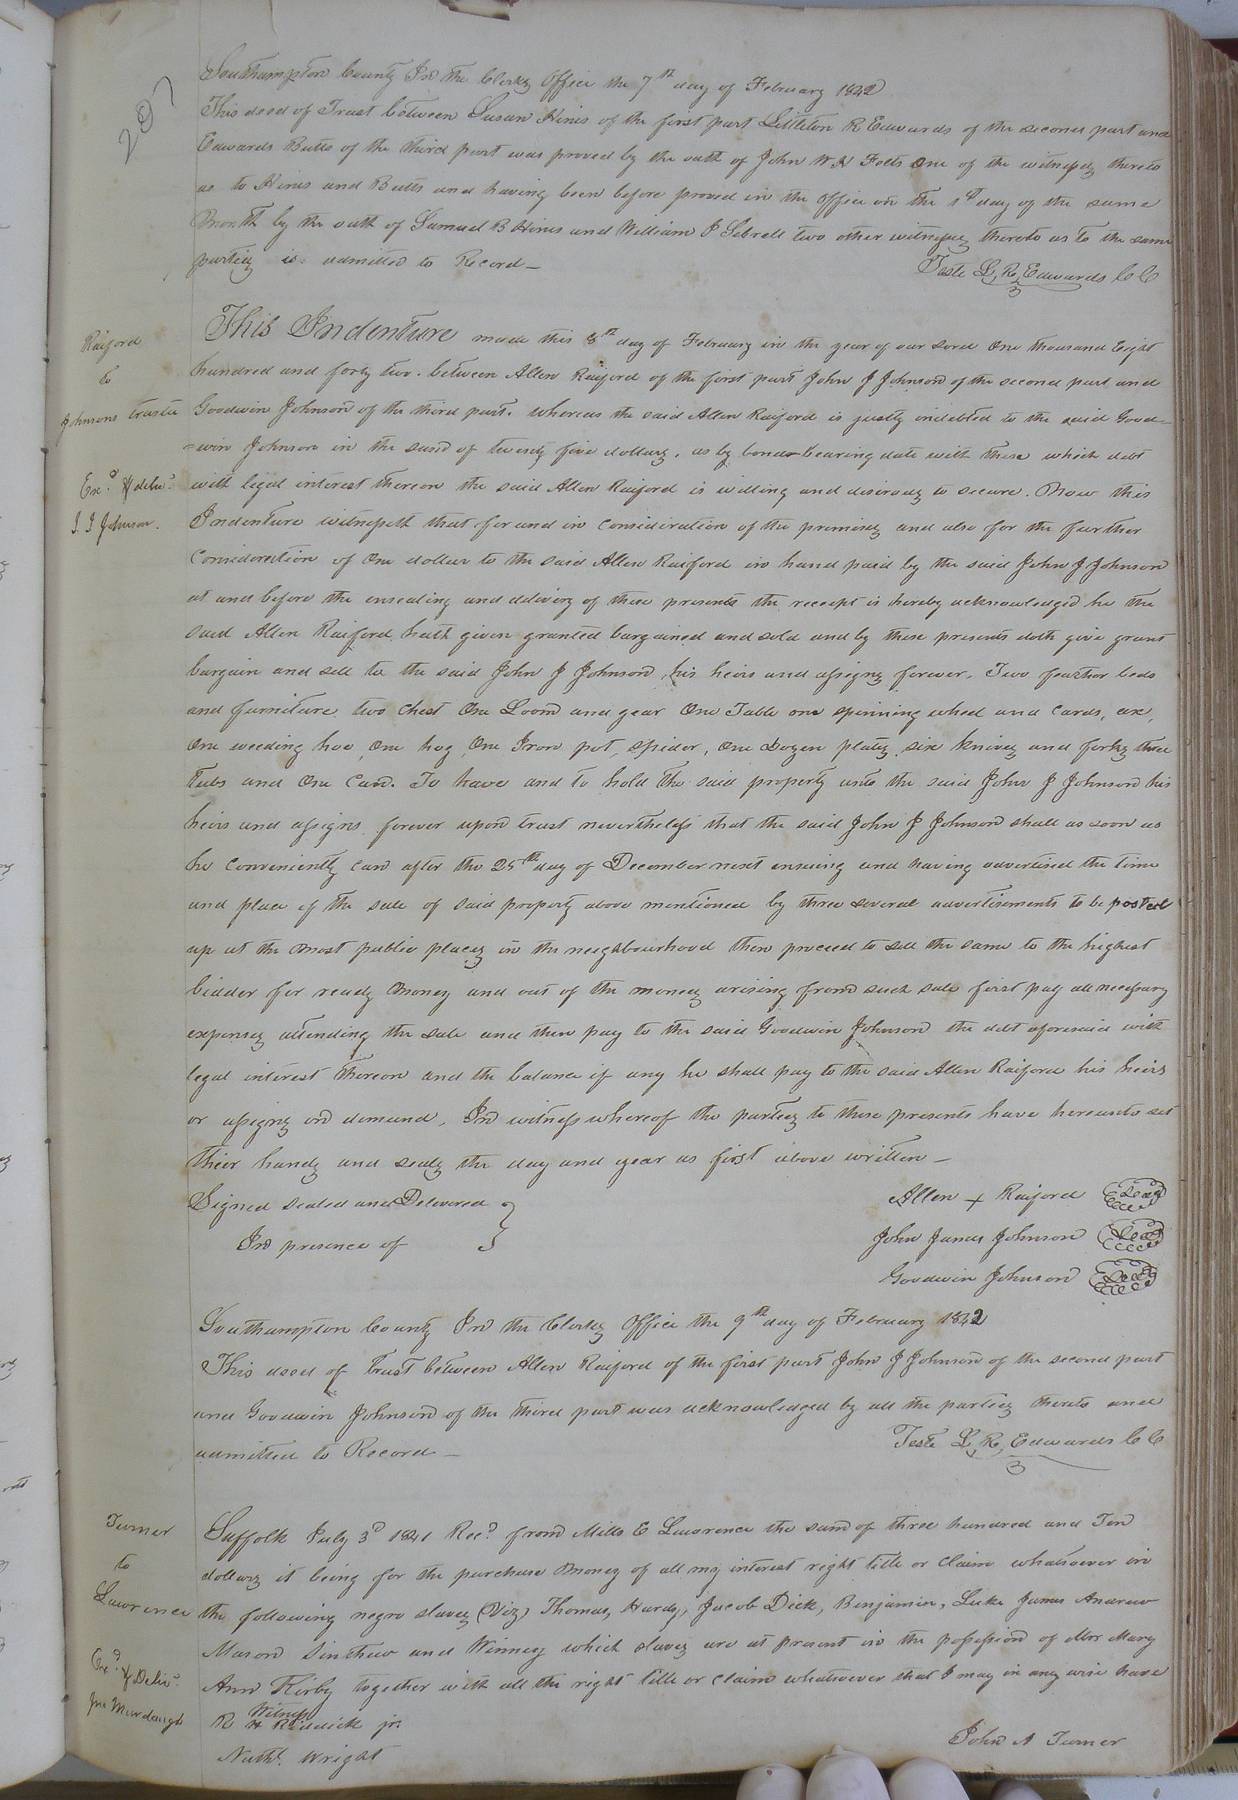 207
Southampton County In the Clerks Office the 7th day of February 1842
This deed of Trust between Susan Hines of the first part Littleton R Edwards of the second part and
Edwards Butts of the third part was proved by the oath of John W H Folts One of the witnesses thereto
as to Hines and Butts and having been before proved in the Office on the 1st day of the same
Month by the oath of Samuel B Hines and William J Sebrell two other witnesses thereto as to the same
parties is admitted to Record—
Teste L, R, Edwards C C
Raiford
to
Johnsons trustee
Exd & delivd
J. J Johnson.
This Indenture made this 8th day of February in the year of our Lord One thousand Eight
hundred and forty two. between Allen Raiford of the first part John J Johnson of the second part and
Goodwin Johnson of the third part. whereas the said Allen Raiford is justly indebted to the said Good=
=win Johnson in the sum of twenty five dollars. as by bond bearing date with these which debt
with legal interest thereon the said Allen Raiford is willing and desirous to secure. Now this
Indenture witnesseth that for and in consideration of the premises and also for the further
Consideration of One dollar to the said Allen Raiford in hand paid by the said John J Johnson
at and before the ensealing and delivery of these presents the receipt is hereby acknowledged he the
said Allen Raiford hath given granted bargained and sold and by these presents doth give grant
bargain and sell to the said John J Johnson, his heirs and assigns forever, Two feather beds
and furniture two Chest One Loom and gear One Table one spinning wheel and Cards, axe,
One weeding hoe, One hog One Iron pot, spider, One Dozen plates six knives and forks three
tubs and One Can. To have and to hold the said property unto the said John J Johnson his
heirs and assigns forever upon trust nevertheless that the said John J Johnson shall as soon as
he conveniently can after the 25th day of December next ensuing and having advertised the time
and place of the sale of said property above mentioned by three several advertisements to be posted
up at the most public places in the neighbourhood then proceed to sell the same to the highest
bidder for ready Money and out of the money arising from such sale first pay all necessary
expenses attending the sale and then pay to the said Goodwin Johnson the debt aforesaid with
legal interest thereon and the balance if any he shall pay to the said Allen Raiford his heirs
or assigns on demand, In witness whereof the parties to these presents have hereunto set
their hands and seals the day and year as first above written—
Signed sealed and Delivered }
In presence of
Allen + Raiford Seal
John James Johnson Seal
Goodwin Johnson Seal
Southampton County In the Clerks Office the 9th day of February 1842
This deed of trust between Allen Raiford of the first part John J Johnson of the second part
and Goodwin Johnson of the third part was acknowledged by all the parties thereto and
admitted to Record—
Teste L, R, Edwards C C
Turner
to
Lawrence
Exd & Delivd
Jno Murdaugh
Suffolk July 3d 1841 Recd from Mills E Lawrence the sum of three hundred and Ten
dollars it being for the purchase Money of all my interest right title or claim whatsoever in
the following negro slaves (Viz) Thomas, Hardy, Jacob Dick, Benjamin, Luke James Andrew
Mason Sinthew and Winney which slaves are at present in the possession of Mrs Mary
Ann Kirby together with all the right title or claim whatsoever that I may in any wise have
Witness
R H Riddick jr.
Nathl. Wright
John A Turner